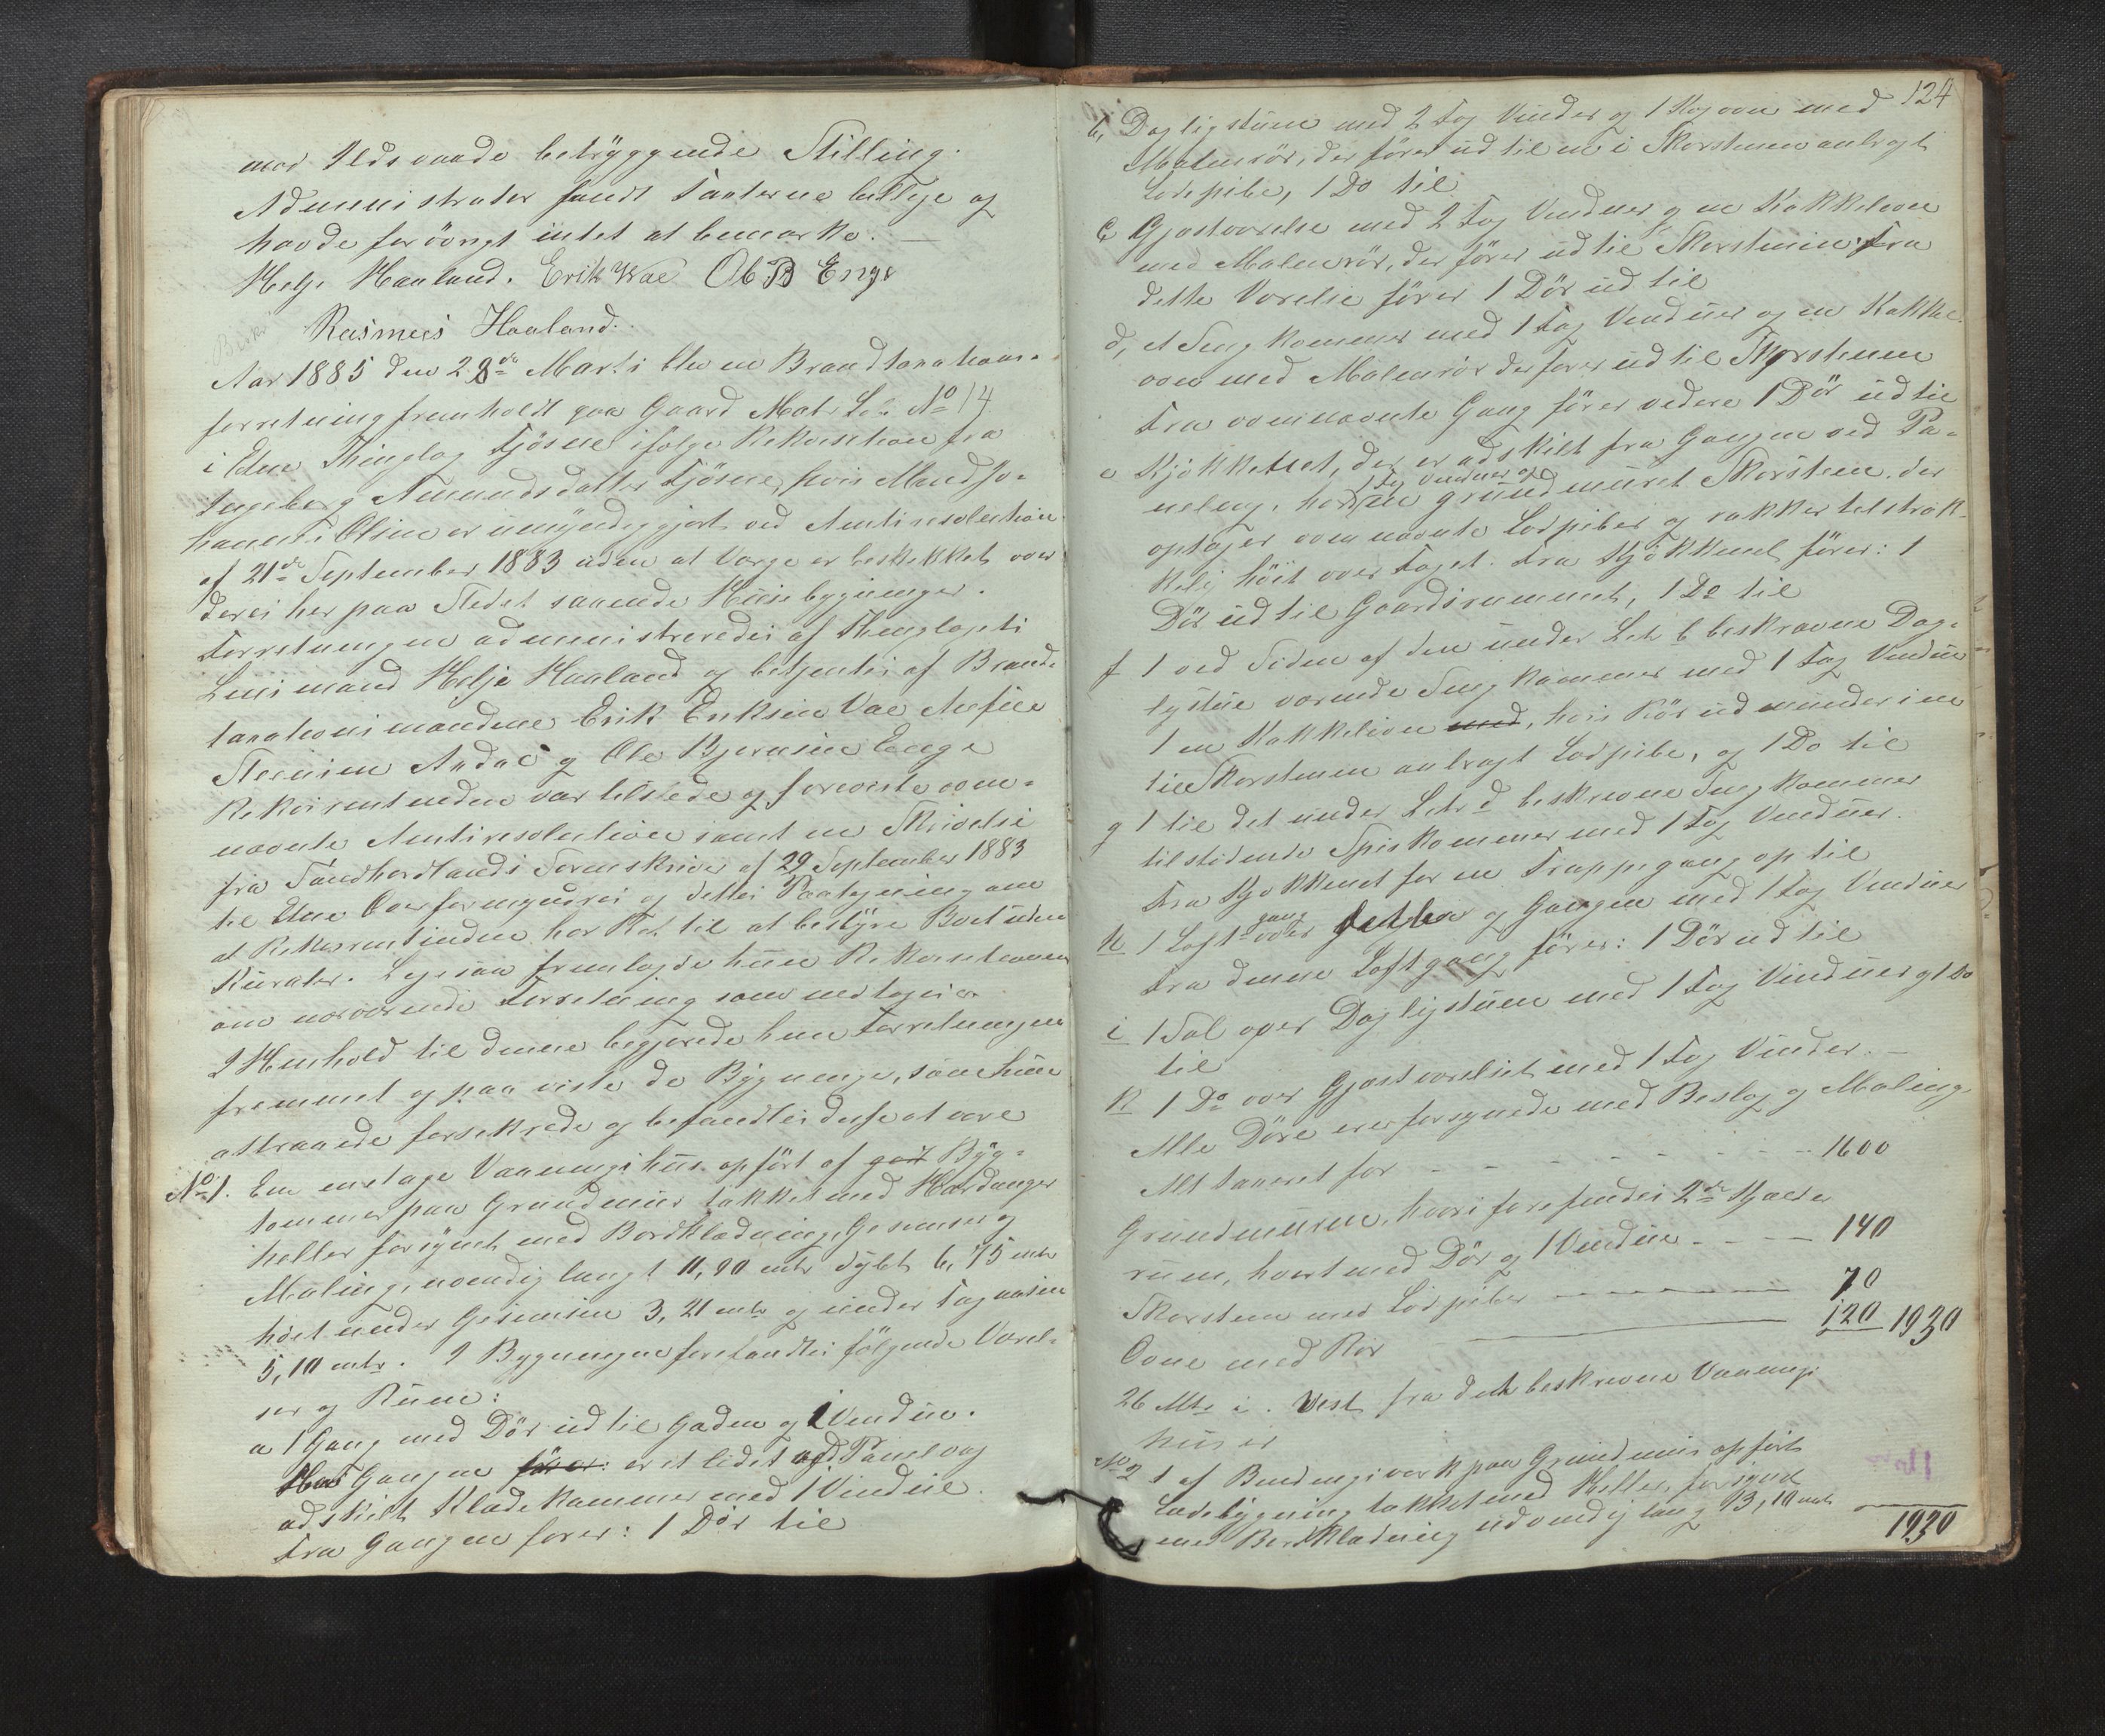 mod Ildsvaade betryggende Stilling.
Administrator fandt Taxterne billige og
havde forövrigt intet at bemærke. —
Helje Haaland. Erik Vae Ole B Enge
Rasmus Haaland.
Aar 1885 den 28de Marts blev en Brandtaxations-
forretning fremholdt paa Gaard Matr Lb: No 14
i Etne Thinglag Tjösne ifölge Rekvisition fra
Ingeborg Amundsdatter Tjösne, hvis Mand Jo-
hannes Olsen er umyndiggjort ved Amtsresolution
af 21de September 1883 uden at Værge er beskikket over
deres her paa Stedet værende Huusbygninger.
Forretningen administreredes af Thinglagets
Lensmand Helje Haaland og betjentes af Brand-
taxationsmændene Erik Eriksen Vae
Steensen og Ole Bjørnsen Enge
Rekvirentinden var tilstede og foreviste oven-
nævnte Amtsresolution samt en Skrivelse
fra Söndhordlands Sorenskriver af 29 September 1883
til Etne Overformynderi og dettes Paategning om
at Rekvirentinden har Ret til at bestyre Boet uden
Kurator. Ligesaa fremlagde hun Rekvisitionen
om nærværende Forretning som medtages.
I Henhold til denne begjærede hun Forretningen
fremmet og paaviste de Bygninger, som hun
attraaede forsikrede og befandtes disse at være
No 1. Een en etage Vaaningshus opfört af godt Byg-
tömmer paa Grundmuur tækket med Hardanger
heller forsynet med Bordklædning, Gesimser og
Maling, udvendig langt 11,90 mtr dybt 6,75 mtr
höit under Gesimsen 3,21 mtr og under Tagaasen
5,10 mtr. I Bygningen forefandtes fölgende Værel-
ser og Rum:
a 1 Gang med Dör ud til Gaden og 1 Vindue.
Ved Gangen förer: er et lidet ved Panelvæg
adskilt Klædekammer med 1 Vindue.
Fra Gangen förer: 1 Dör til
124
b, Dagligstuen med 2 Fag Vinduer og 1 Kogovn med
Malmrör, der förer ud til en i Skorstenen anbragt
Lodpibe, 1 Do til
c, Gjæstværelse med 2 Fag Vinduer og en Kakkelovn
med Malmrör, der förer ud til Skorstenen. Fra
dette Værelse förer 1 Dör ud til
d, et Sengkammer med 1 Fag Vinduer og en Kakkel-
ovn med Malmrör der förer ud til Skorstenen
Fra ovennævnte Gang förer videre 1 Dör ud til
e Kjökkenet, der er adskilt fra Gangen ved Pa-
neling, har 1 Fag Vinduer og en grundmuret Skorsten. der
optager ovennævnte Lodpiber og rækker tilstræk-
kelig höit over Taget. Fra Kjökkenet förer: 1
Dör ud til Gaardsrummet, 1 Do til
f 1 ved Siden af den under Litr b beskrevne Dag-
ligstue værende Sengkammer med 1 Fag Vinduer
1 en Kakkelovn med, hvis Rör udmunder i en
til Skorstenen anbragt Lodpibe, og 1 Do til
g 1 til det under Litr d beskrevne Sengkammer
tilstödende Spiskammer med 1 Fag Vinduer.
Fra Kjökkenet før en Trappegang op til
h 1 Loftgang over og Gangen med 1 Fag Vinduer
Fra denne Loftgang förer: 1 Dör ud til
i 1 Sal over Dagligstuen med 1 Fag Vinduer og 1 Do
til
k 1 Do over Gjæstværelset med 1 Fag Vinduer. —
Alle Döre ere forsynede med Beslag og Maling.
Alt taxeret for - - - - - - - 1600
Grundmuren, hvori forefindes 2de Kjælder
rum, hvert med Dör og 1 Vindue - - - - 140
Skorsten med Lodpiber - - - - - - 70
Ovne med Rör ——— 120 1930
26 Mtr i. Vest fra det beskrevne Vaanings
hus er
No 2 1 af Bindingsværk paa Grundmuur opfört
Ladebygning tækket med Heller, forsynet
med Bordklædning udvendig lang 13,10 mtr
1930